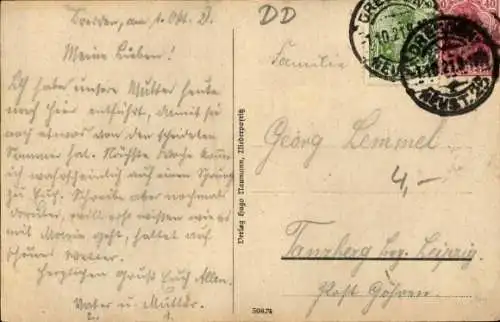 Dresden, am 1. Okt. 21.
Meine Lieben!
Ich habe unsere Mutter heute
noch hier entführt, damit sie
noch etwas von dem scheidenden
Sommer hat. Nächste Woche komme
ich wahrscheinlich auf einen Sprung
zu Euch. Schreibe aber nochmal
darüber, will erst wissen wie es
mit geht, haltet auf
schönes Wetter.
Herzlichen Gruß Euch Allen.
Vater u. Mutter.
Verlag Hugo Naumann, Niederpoyritz
50874
DD
DRESDEN
1.10.21
NEUST.
40
Familie
Georg Lemmel
4,-
Tanzberg bez. Leipzig.
Post Göhren.